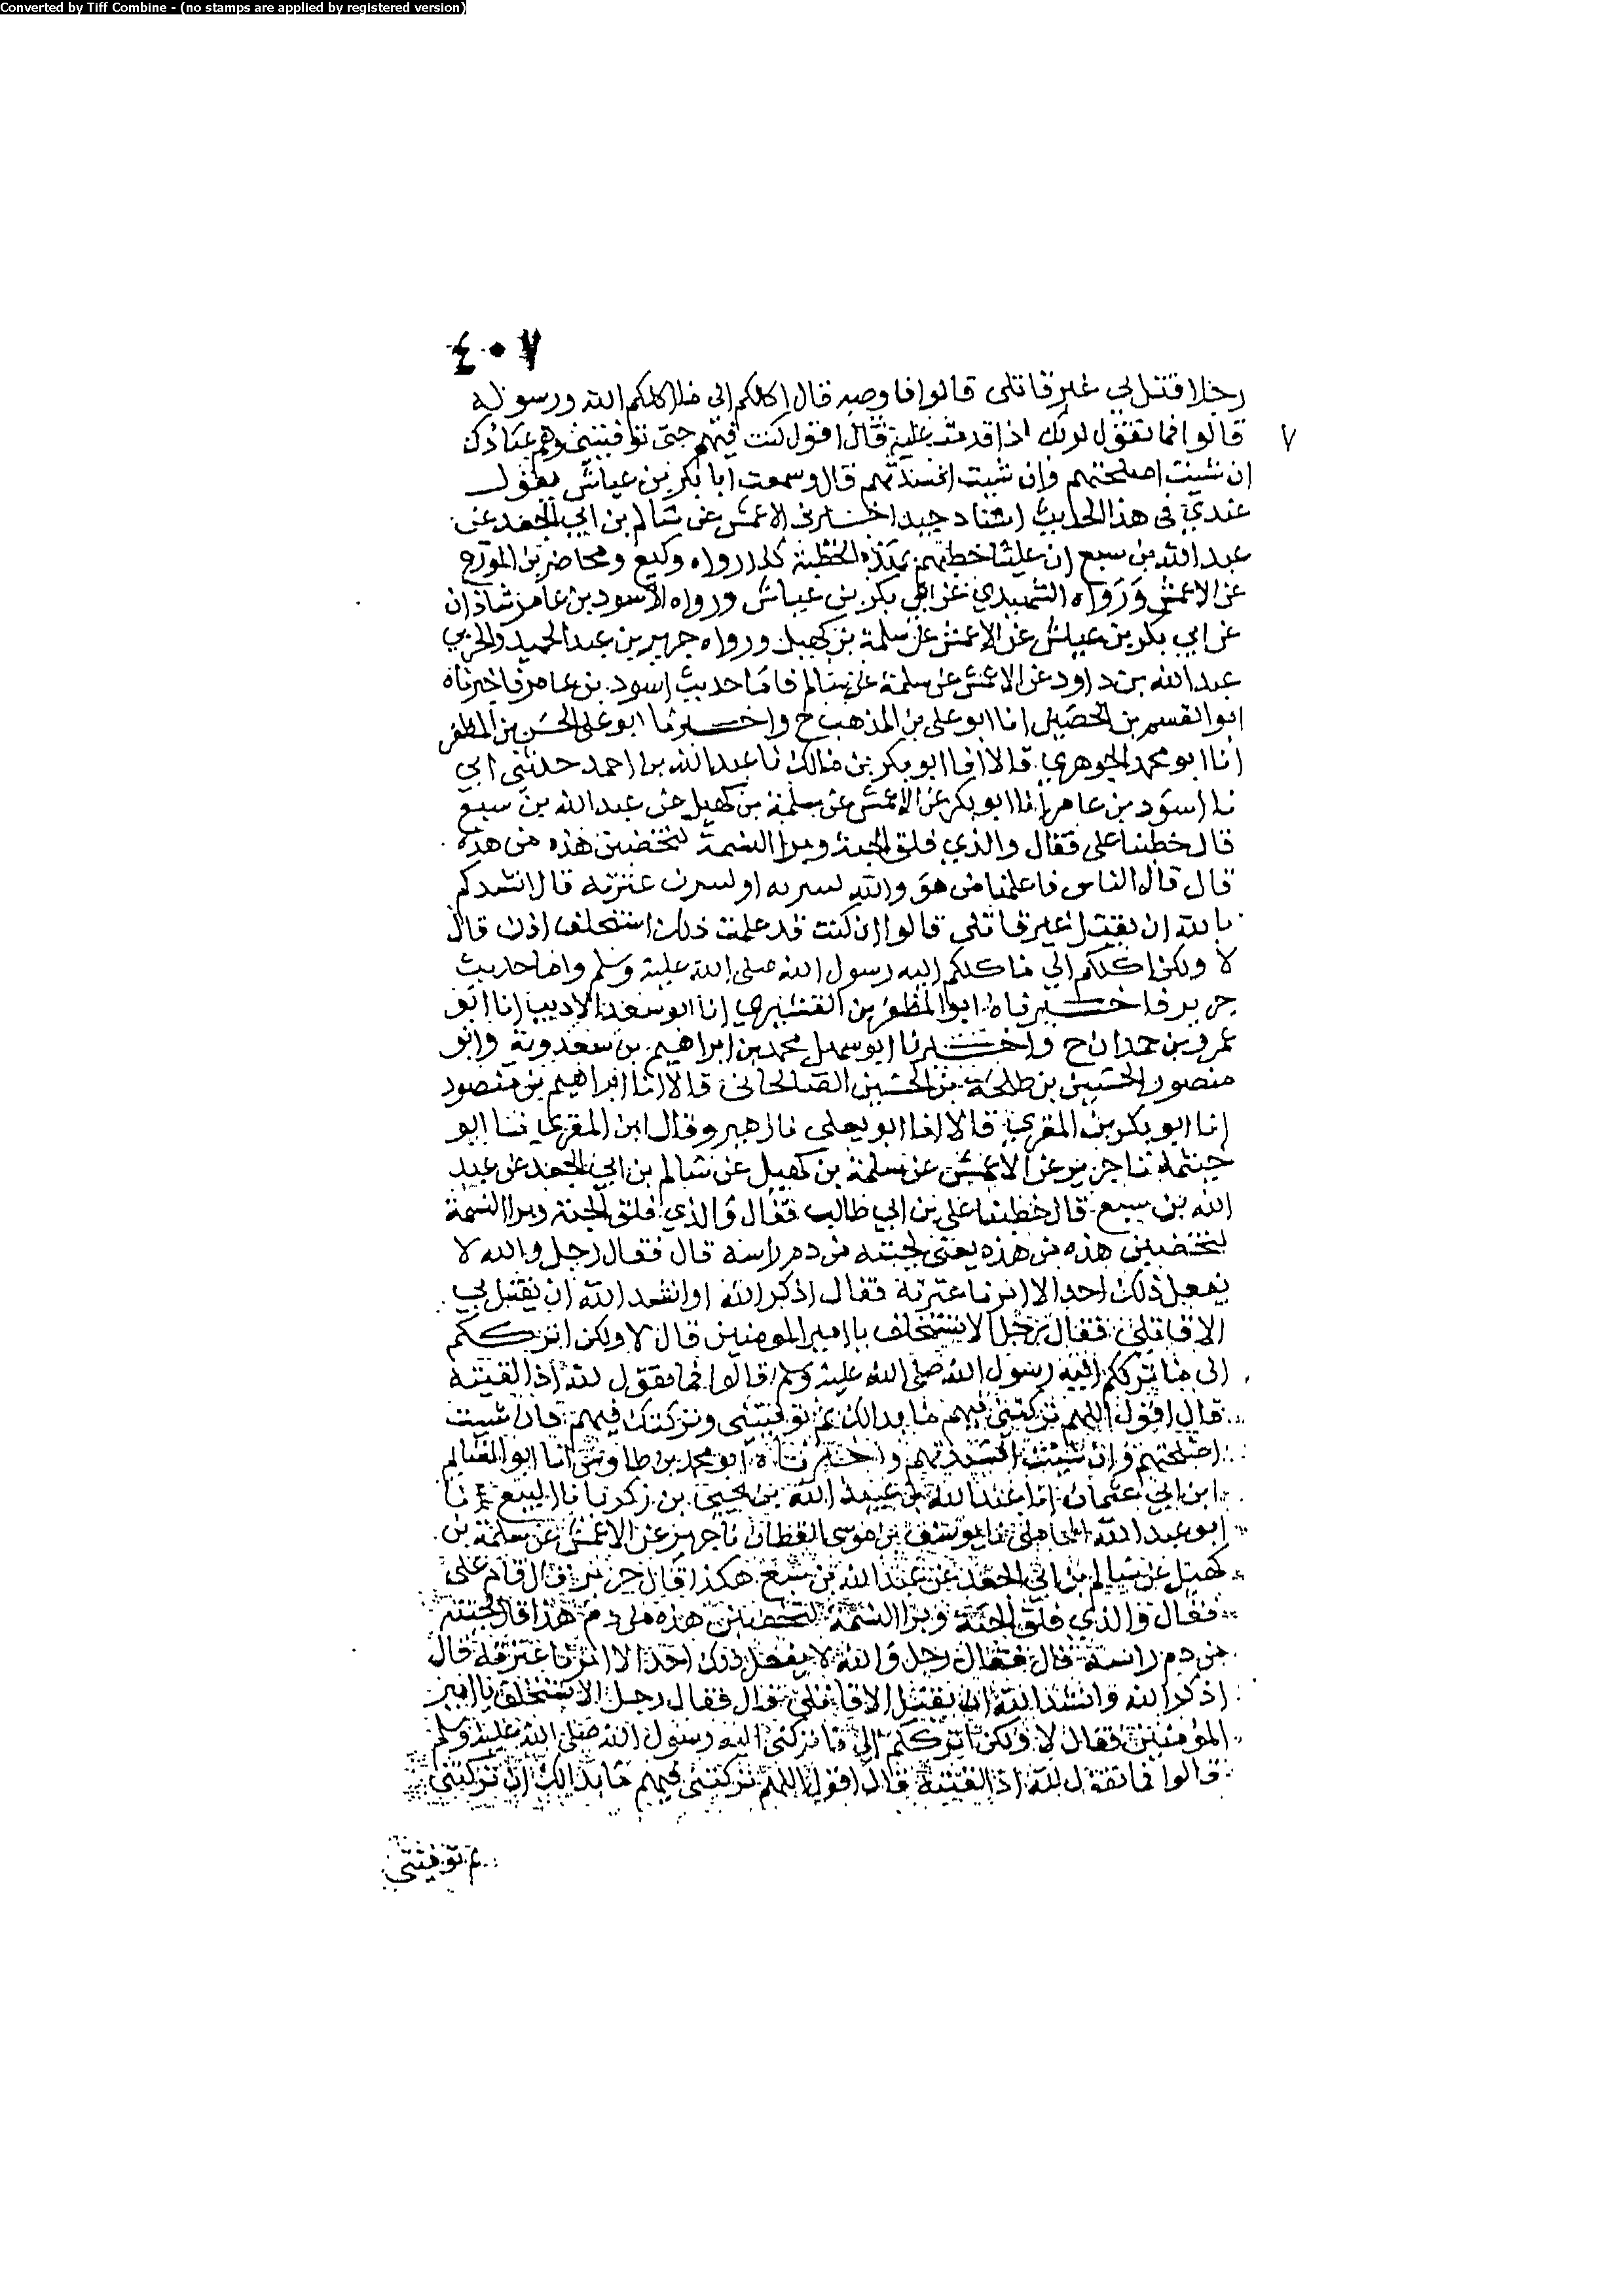 Converted by Tiff Combine - (no stamps are applied by registered version)
٤٠٧
رجلا قتل بي غير قاتلي قالوا فاوصه قال اكلكم الى ما اكلكم الله ورسوله
قالوا فما تقول لربك اذا قدمت عليه قال اقول كنت فيهم حتى توفيتني وهم عبادك
٧
ان شئت اصلحتهم وان شئت افسدتهم قال وسمعت ابا بكر بن عياش يقول
عندي في هذا الحديث اسناد جيد اخبرني الاعمش عن سالم بن ابي الجعد عن
عبد الله بن سبع ان عليا خطبهم بهذه الخطبة كذا رواه وكيع ومحاضر بن المورع
عن الاعمش ورواه عن ابي بكر بن عياش ورواه الاسود بن عامر شاذان
عن ابي بكر بن عياش عن الاعمش عن سلمة بن كهيل ورواه جرير بن عبد الحميد والخريبي
عبد الله بن داود عن الاعمش عن سلمة عن سالم فاما حديث اسود بن عامر فاخبرناه
ابو القسم بن الحصين انا ابو علي بن المذهب ح واخبرنا ابو علي الحسن بن المظفر
انا ابو محمد الجوهري قالا انا ابو بكر بن مالك نا عبد الله بن احمد حدثني ابي
نا اسود بن عامر انا ابو بكر عن الاعمش عن سلمة بن كهيل عن عبد الله بن سبع
قال خطبنا علي فقال والذي فلق الحبة وبرا النسمة لتخضبن هذه من هذه
قال قال الناس فاعلمنا من هو والله لنبيرنه او لنبيرن عترته قال انشدكم
بالله ان يقتل غير قاتلي قالوا ان كنت قد علمت ذلك استخلف اذن قال
لا ولكن اكلكم الى ما كلكم اليه رسول الله صلى الله عليه وسلم واما حديث
جرير فاخبرناه ابو المظفر بن القشيري انا ابو سعد الاديب انا ابو
عمرو بن حمدان ح واخبرنا ابو سهل محمد بن ابراهيم بن سعدوية وابو
منصور الحسين بن طلحة بن الحسين الصالحاني قالا انا ابراهيم بن منصور
انا ابو بكر بن المقري قالا انا ابو يعلى نا زهير وقال ابن المقري نا ابو
خيثمة نا جرير عن الاعمش عن سلمة بن كهيل عن سالم بن ابي الجعد عن عبد
الله بن سبع قال خطبنا علي بن ابي طالب فقال والذي فلق الحبة وبرا النسمة
لتخضبن هذه من هذه يعني لحيته من دم راسه قال فقال رجل والله لا
يفعل ذلك احد الا ابرنا عترته فقال اذكر الله او انشد الله ان يقتل بي
الا قاتلي فقال رجل الا تستخلف يا امير المومنين قال لا ولكن اترككم
الى ما ترككم اليه رسول الله صلى الله عليه وسلم قالوا فما تقول لله اذا لقيته
قال اقول اللهم تركتني فيهم ما بدا لك ثم توفيتني وتركتك فيهم فان شيت
اصلحتهم وان شيت افسدتهم واخبرناه ابو محمد بن طاوس انا ابو الغنائم
ابن ابي عثمان انا عبد الله بن عبيد الله بن يحيى بن زكريا البيع نا
ابو عبد الله المحاملي نا يوسف بن موسى القطان نا جرير عن الاعمش عن سلمة بن
كهيل عن سالم بن ابي الجعد عن عبد الله بن سبع هكذا قال جرير قال قام علي
فقال والذي فلق الحبة وبرا النسمة لتخضبن هذه من دم هذا قال لحيته
من دم راسه قال فقال رجل والله لا يفعل ذلك احد الا ابرنا عترته قال
اذكر الله وانشد الله ان يقتل الا قاتلي قال فقال رجل الا تستخلف يا امير
المؤمنين فقال لا ولكن اترككم الى ما تركني اليه رسول الله صلى الله عليه وسلم
قالوا فما تقول لله اذا لقيته قال اقول اللهم تركتني فيهم ما بدا لك ان تركتني
ثم توفيتني